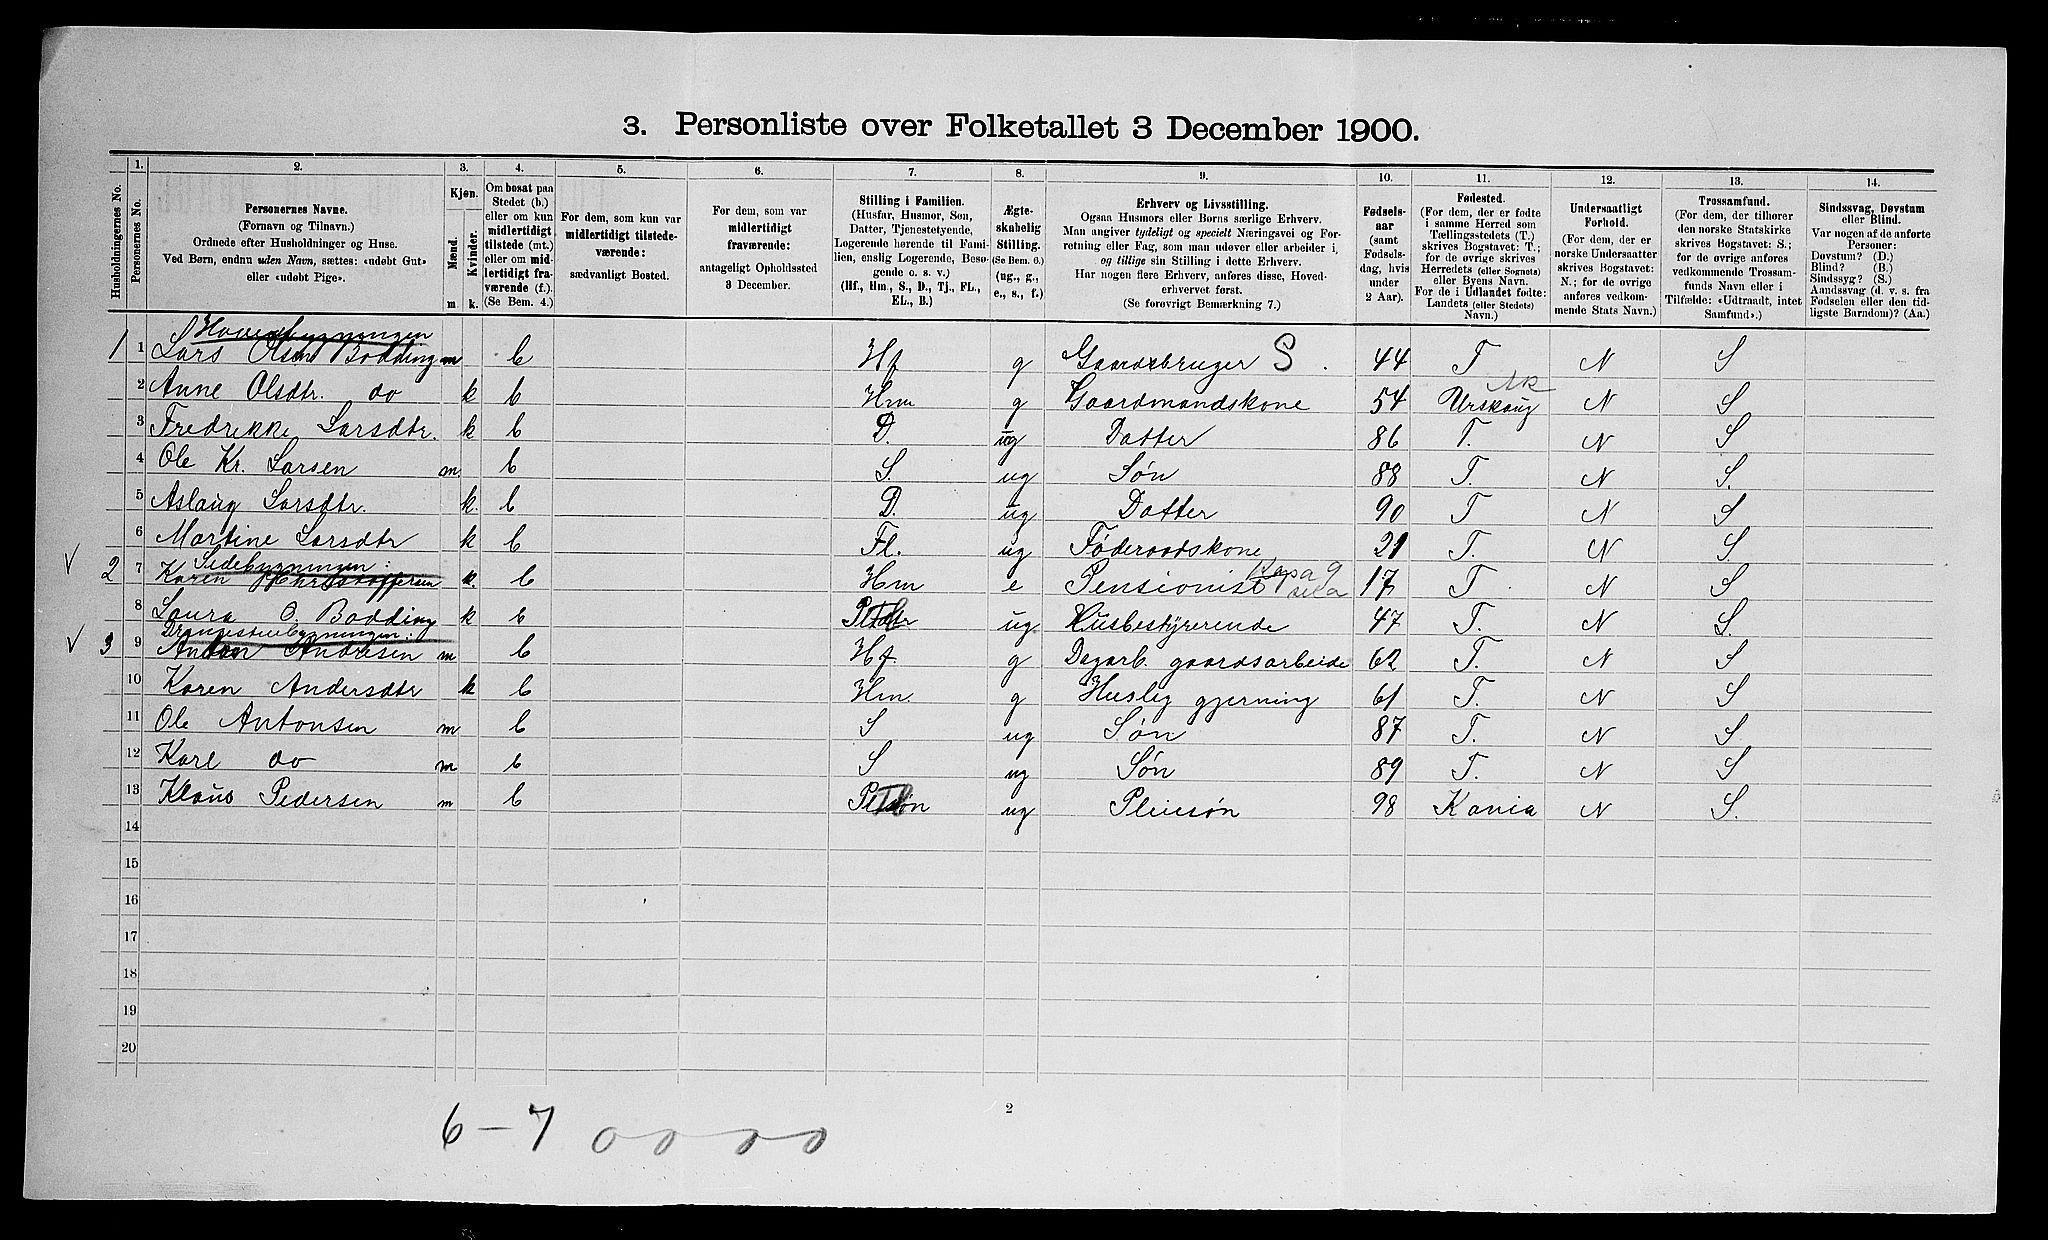 3. Personliste over Folketallet 3 December 1900.
Husholdningernes No.
1.
Personernes No.
2.
Personernes Navne.
(Fornavn og Tilnavn.)
Ordnede efter Husholdninger og Huse.
Ved Børn, endnu uden Navn, sættes: «udøbt Gut»
eller «udøbt Pige».
3.
Kjøn.
Mænd.
Kvinder.
m.
k.
4.
Om bosat paa
Stedet (b.)
eller om kun
midlertidigt
tilstede (mt.)
eller om mid-
lertidigt fra-
værende (f.).
(Se Bem. 4.)
5.
For dem, som kun var
midlertidigt tilstede-
værende:
sædvanligt Bosted.
6.
For dem, som var
midlertidigt
fraværende:
antageligt Opholdssted
3 December.
7.
Stilling i Familien.
(Husfar, Husmor, Søn,
Datter, Tjenestetyende,
Logerende hørende til Fami-
lien, enslig Logerende, Besø-
gende o. s. v.)
(Hf., Hm., S., D., Tj., FL.,
EL., B.)
8.
Ægte-
skabelig
Stilling.
(Se Bem. 6.)
(ug., g.,
e., s., f.)
9.
Erhverv og Livsstilling.
Ogsaa Husmors eller Børns særlige Erhverv.
Man angiver tydeligt og specielt Næringsvei og For-
retning eller Fag, som man udøver eller arbeider i,
og tillige sin Stilling i dette Erhverv.
Har nogen flere Erhverv, anføres disse, Hoved-
erhvervet først.
(Se forøvrigt Bemærkning 7.)
10.
Fødsels-
aar
(samt
Fødsels-
dag, hvis
under
2 Aar).
11.
Fødested.
(For dem, der er fødte
i samme Herred som
Tællingsstedets (T.)
skrives Bogstavet: T.;
for de øvrige skrives
Herredets (eller Sognets)
eller Byens Navn.
For de i Udlandet fødte:
Landets (eller Stedets)
Navn.)
12.
Undersaatligt
Forhold.
(For dem, der er
norske Undersaatter
skrives Bogstavet:
N.; for de øvrige
anføres vedkom-
mende Stats Navn.)
13.
Trossamfund.
(For dem, der tilhører
den norske Statskirke
skrives Bogstavet: S.;
for de øvrige anføres
vedkommende Trossam-
funds Navn eller i
Tilfælde: «Udtraadt, intet
Samfund».)
14.
Sindssvag, Døvstum
eller Blind.
Var nogen af de anførte
Personer:
Døvstum? (D.)
Blind? (B.)
Sindssyg? (S.)
Aandssvag (d. v. s. fra
Fødselen eller den tid-
ligste Barndom)? (Aa.)
Hovedbygningen
1 1 Lars Olsen Bodding m b Hf g Gaardbruger S. 44 T N S
2 Anne Olsdtr. do k b Hm g Gaardmandskone 54 Urskoug Ak N S
3 Fredrikke Larsdtr. k b D. ug Datter 86 T. N S
4 Ole Kr. Larsen m b S. ug Søn 88 T. N S.
5 Aslaug Larsdtr. k. b D. ug Datter 90 T N S
6 Martine Larsdtr k b Fl. ug Føderaadskone 21 T. N S.
Sidebygningen:
√ 2 7 Karen Christoffersen k. b Hm e Pensionist 17 T N S
8 Laura O. Bodding k b ug. Husbestyrerende 47 T. N S.
Drengestuebygningen:
√ 3 9 Anton Andresen m b Hf. g Dagarb. gaardsarbeide 62 T. N S
10 Karen Andersdtr k b Hm. g Huslig gjerning 61 T. N S
11 Ole Antonsen m b S ug Søn 87 T. N S
12 Karl do m b S ug Søn 89 T. N S
13 Klaus Pedersen m b ug Pleiesøn 98 Kania N S.
14
15
16
17
18
19
20
2
6-7 0 0 0 0